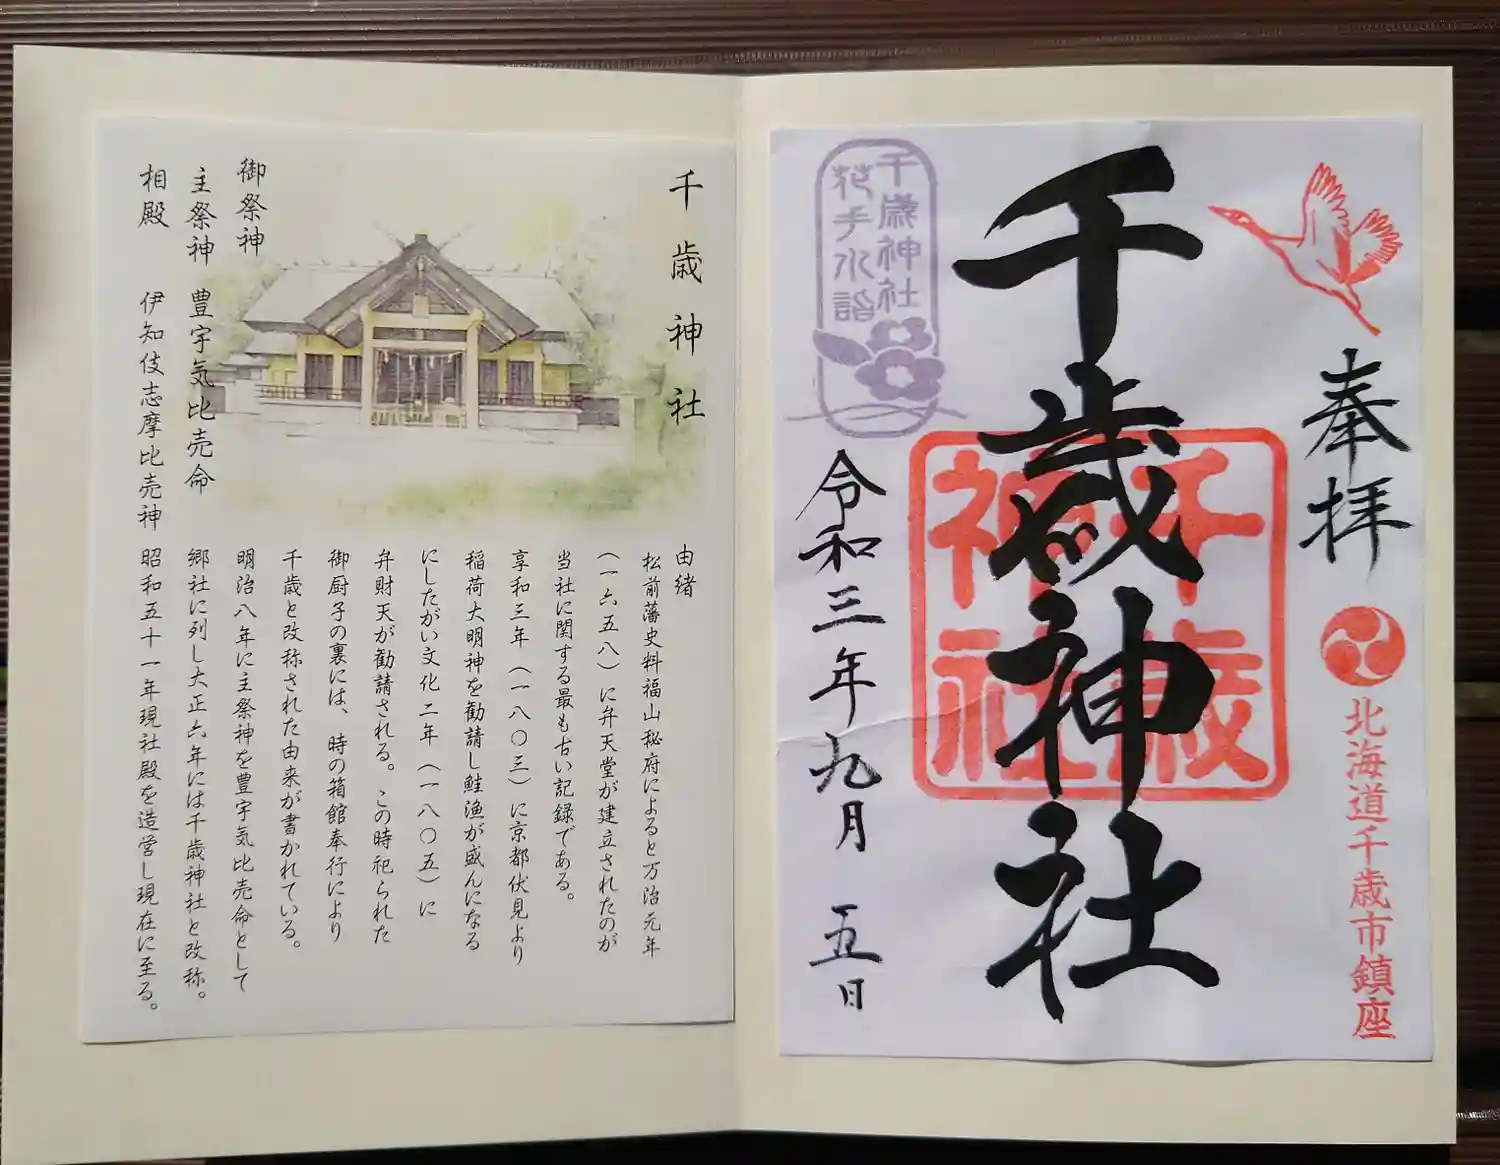 奉拝
北海道千歳市鎮座
千歳神社
千歳神社
千歳神社
花手水詣
令和三年九月 五日
千歳神社
御祭神
主祭神 豊宇気比売命
相殿 伊知伎志摩比売神
由緒
松前藩史料福山秘府によると万治元年
(一六五八)に弁天堂が建立されたのが
当社に関する最も古い記録である。
享和三年(一八〇三)に京都伏見より
稲荷大明神を勧請し鮭漁が盛んになる
にしたがい文化二年(一八〇五)に
弁財天が勧請される。この時祀られた
御厨子の裏には、時の箱館奉行により
千歳と改称された由来が書かれている。
明治八年に主祭神を豊宇気比売命として
郷社に列し大正六年には千歳神社と改称。
昭和五十一年現社殿を造営し現在に至る。